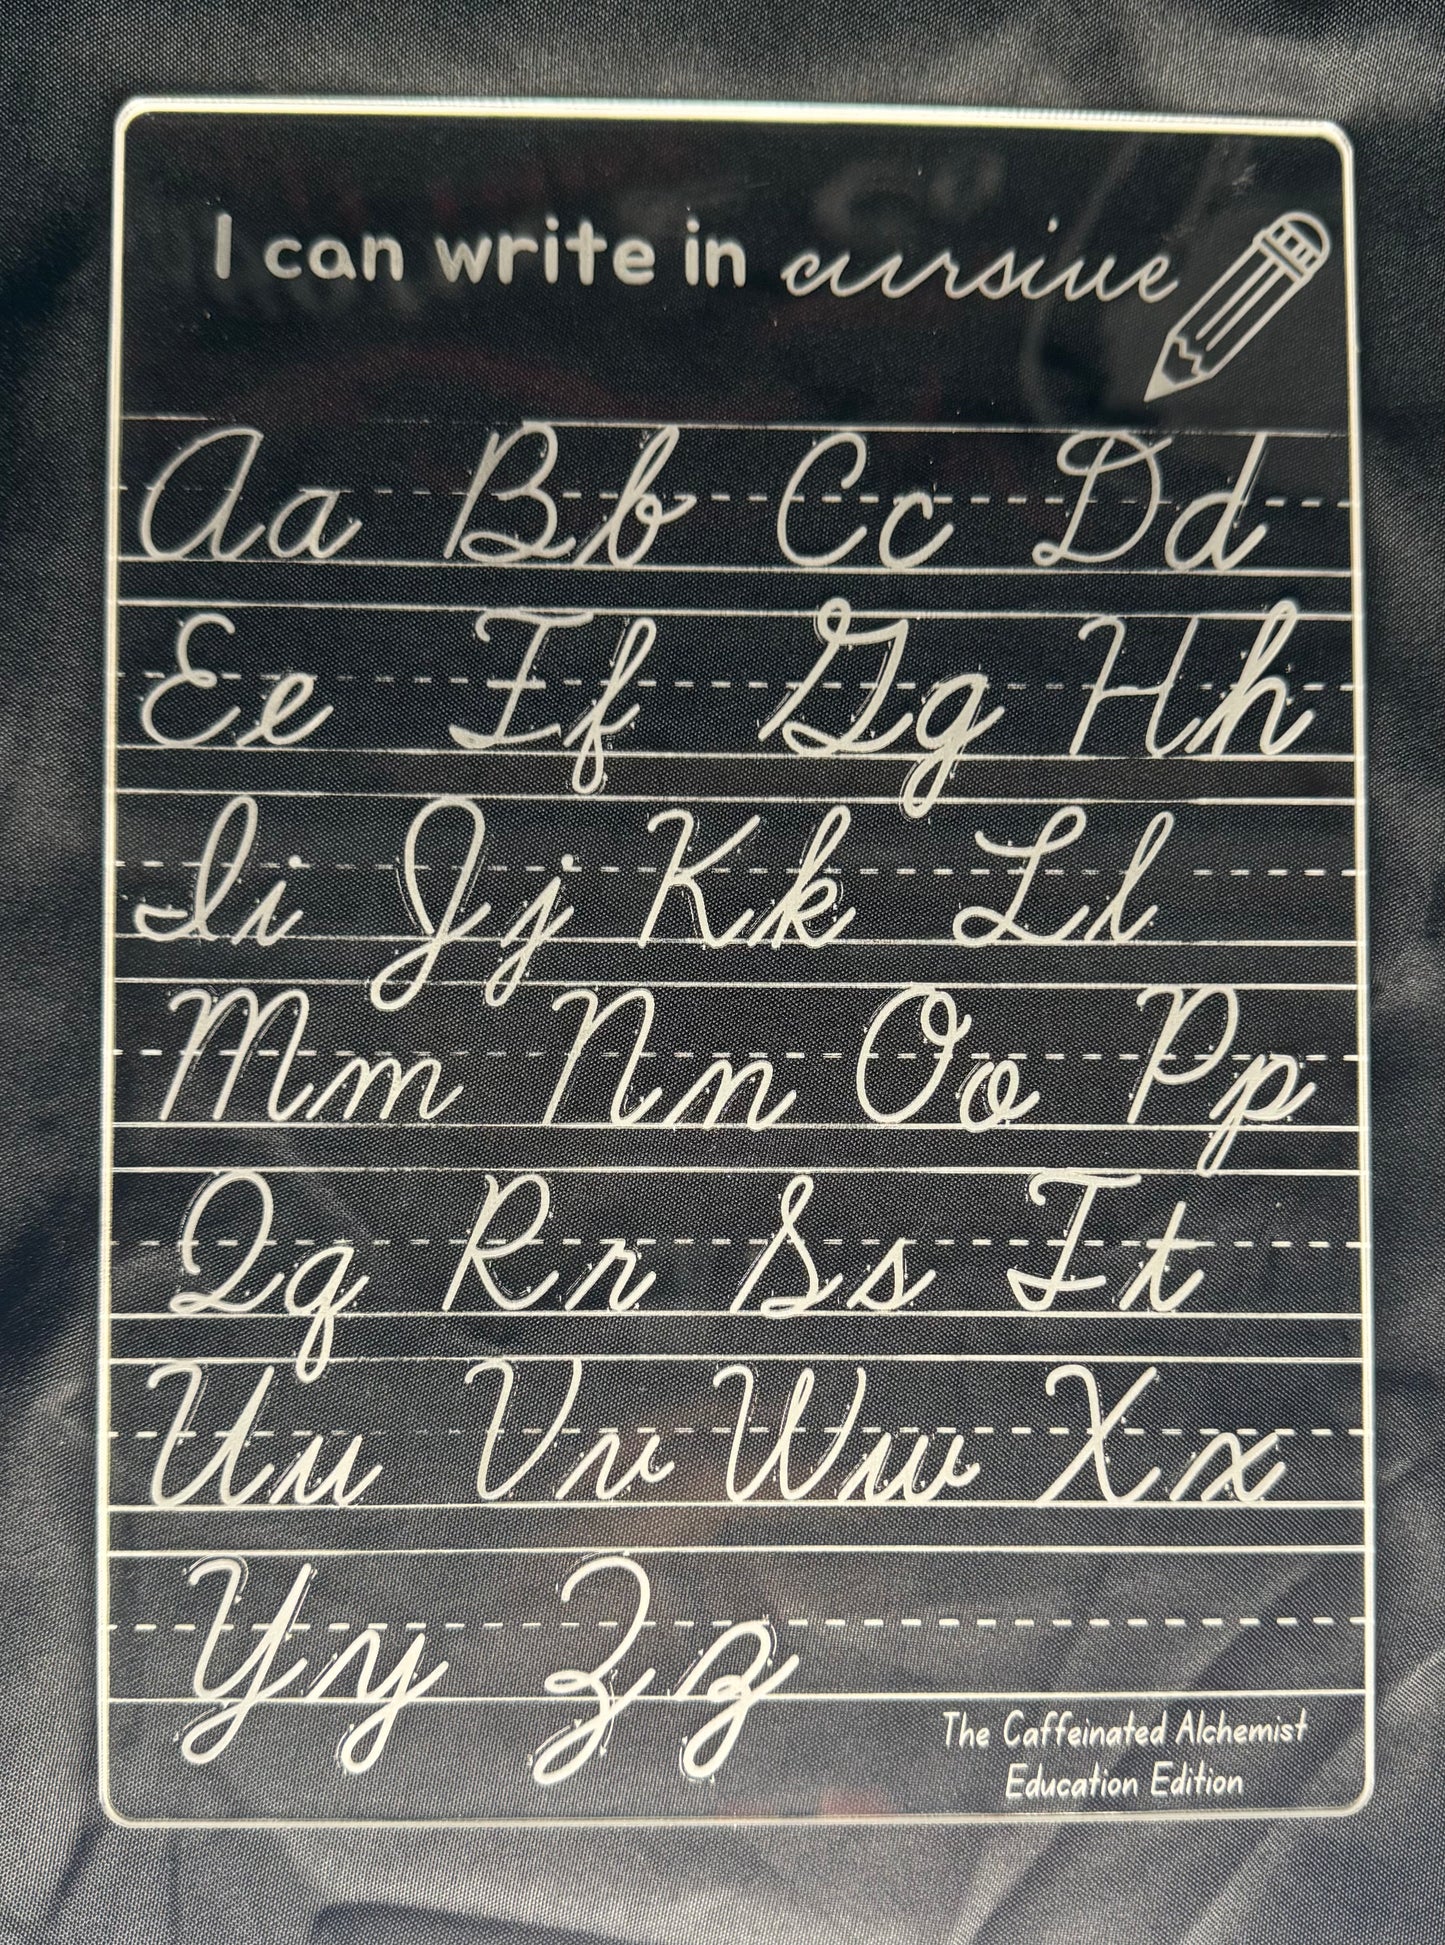 I can write in cursive
Aa Bb Cc Dd
Ee Ff Gg Hh
Ii Jj Kk Ll
Mm Nn Oo Pp
Qq Rr Ss Tt
Uu Vv Ww Xx
Yy Zz
The Caffeinated Alchemist
Education Edition